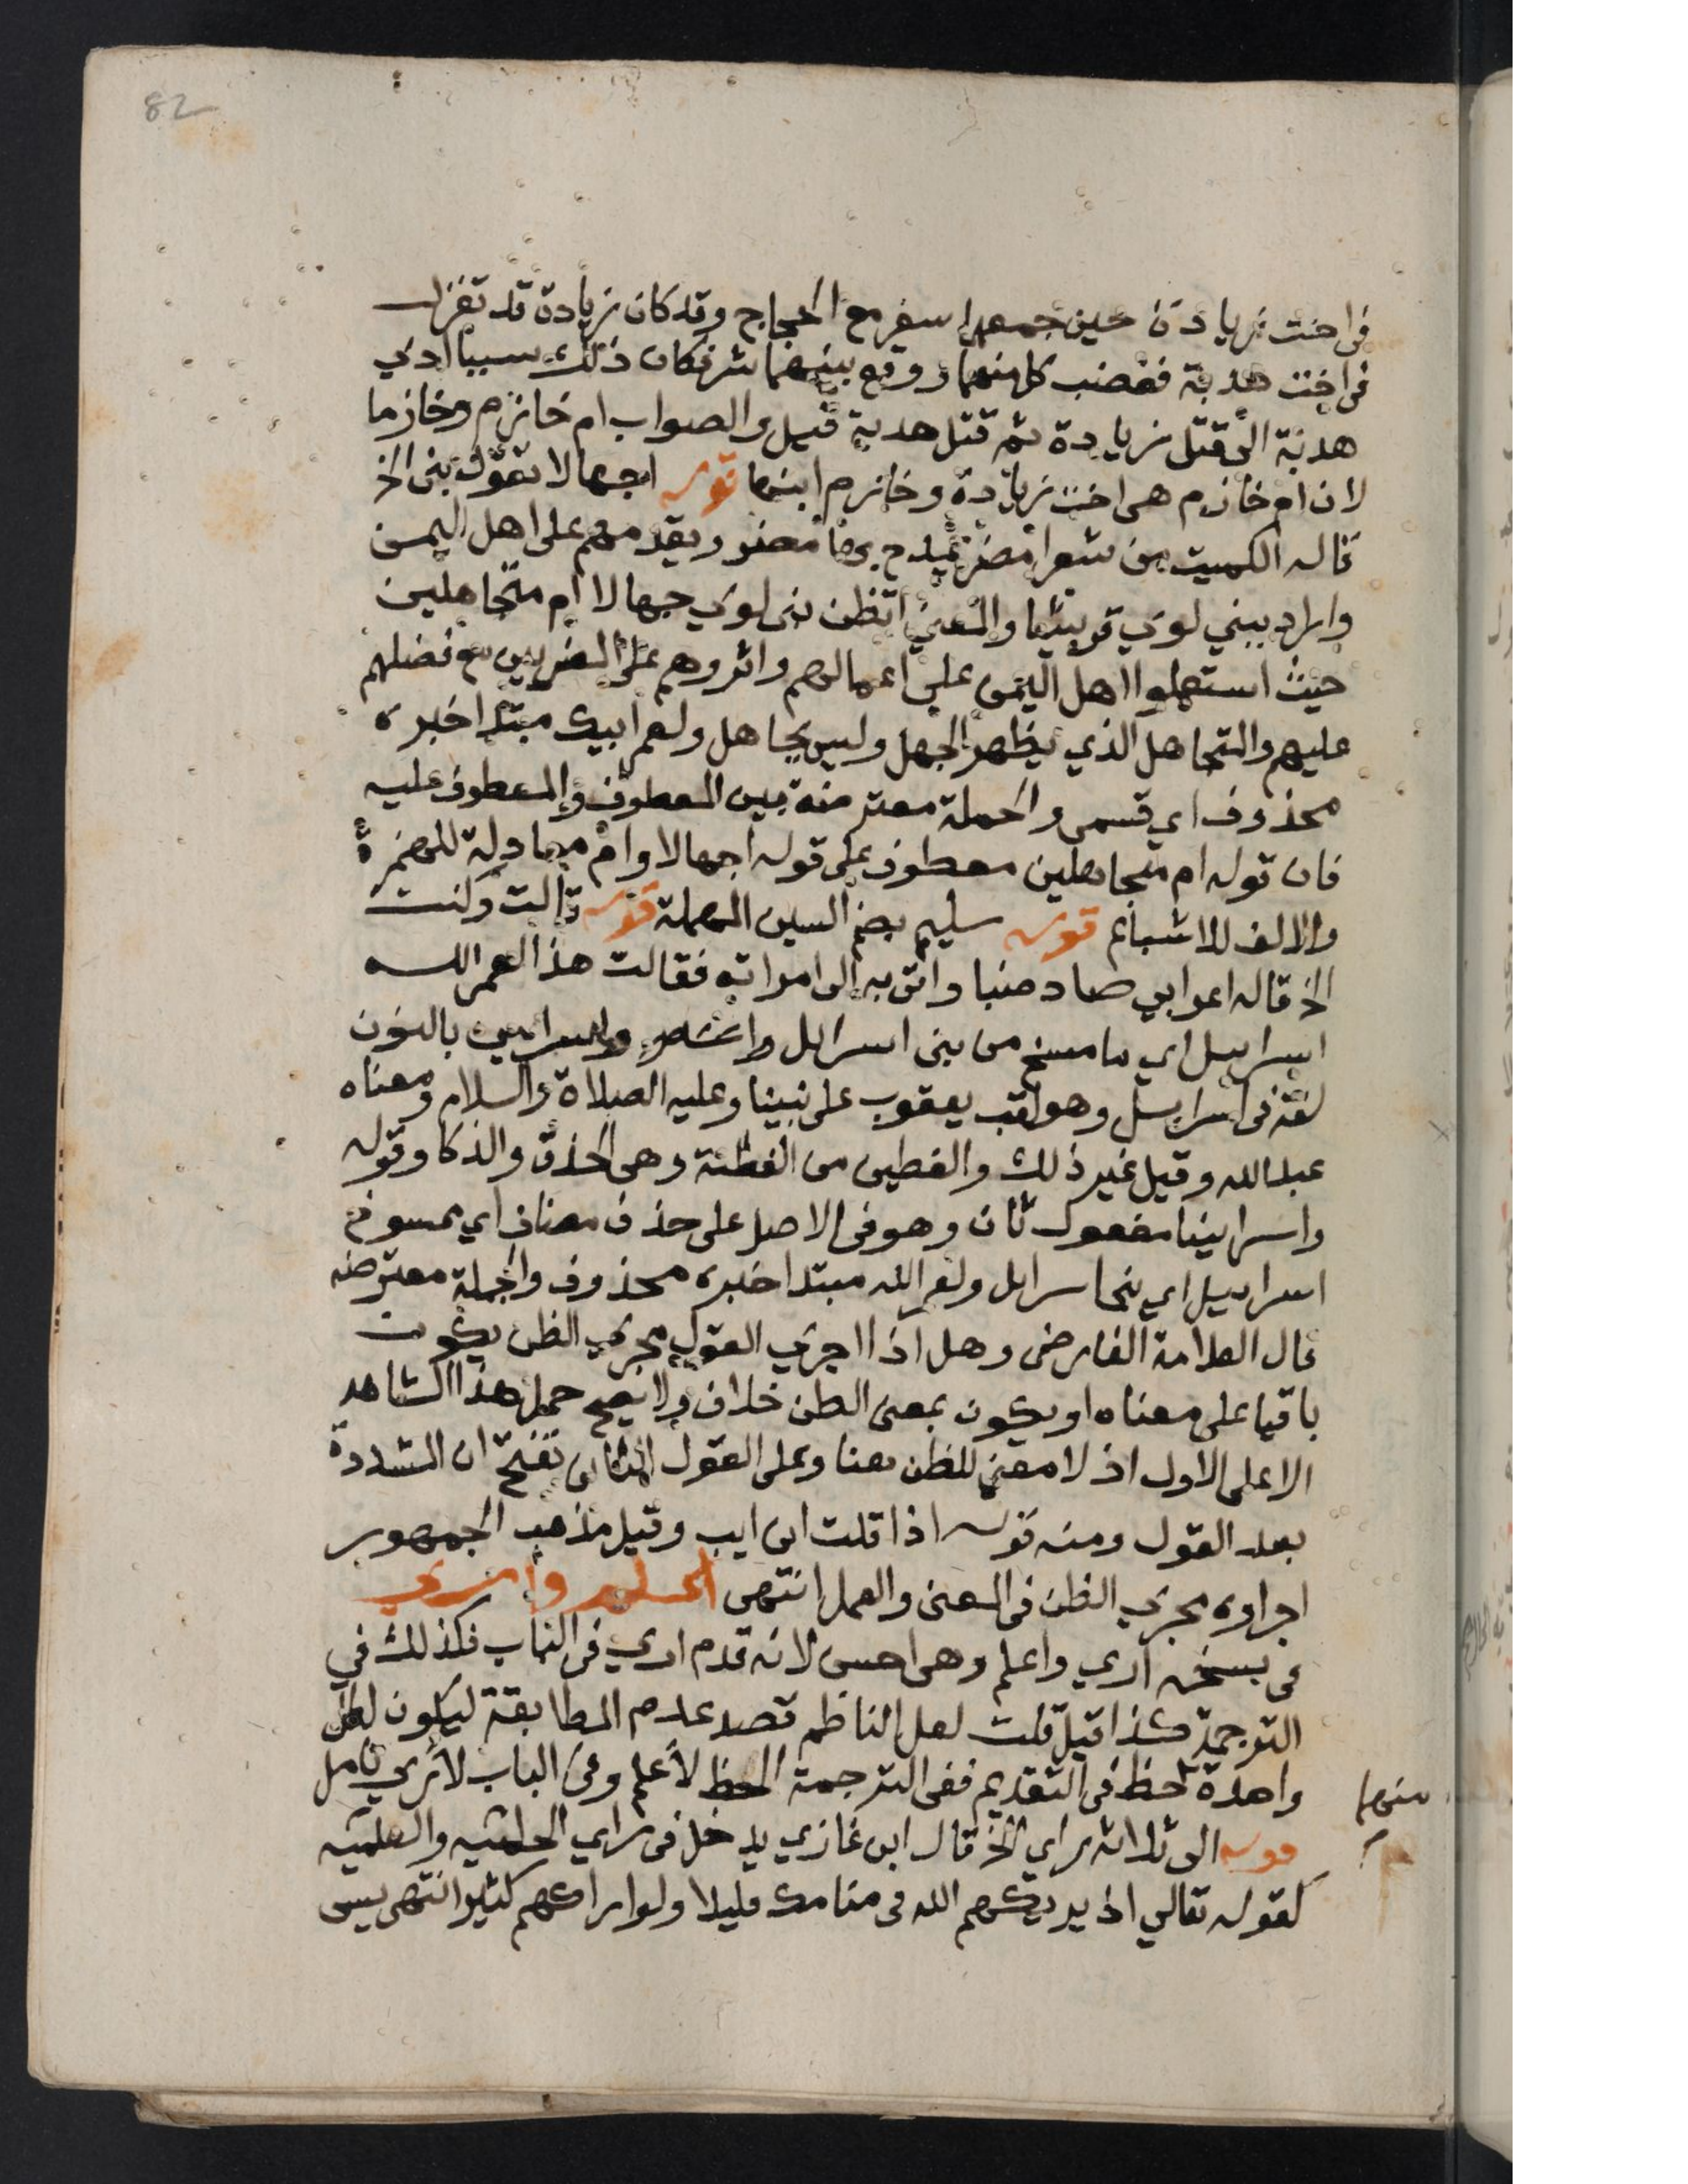 82
في اخت زيادة حين جمعهما سفر مع الحجاج وقد كان زيادة قد تغزل
في اخت هدبة فغضب كل منهما ووقع بينهما شر فكان ذلك سببا ادي
هدبة الى قتل زيادة ثم قتل هدبة قيل والصواب ام خازم وخازما
لان ام خازم هي اخت زيادة وخازم ابنها قوله اجهالا تقول بني الخ
قاله الكميت من شعرا مضر يمدح بها مضر ويقدمهم على اهل اليمن
واراد ببني لوي قريشا والمعني اتظن بني لوي جهالا ام متجاهلين
حيث استعملوا اهل اليمن علي اعمالهم واثروهم على المضريين مع فضلهم
عليهم والتجاهل الذي يظهر الجهل وليس بجاهل ولعمر ابيك مبتدا خبره
محذوف اي قسمي والجملة معترضة بين المعطوف والمعطوف عليه
فان قوله ام متجاهلين معطوف على قوله اجهالا وام معادلة للهمزة
والالف للاشباع قوله سليم بضم السين المهملة قوله قالت وكنت
الخ قاله اعرابي صاد ضبا واتى به الى امراته فقالت هذا لعمر الله
اسراييل اي ما مسخ من بني اسرايل واسراين بالنون
لغة في اسراييل وهو لقب يعقوب على نبينا وعليه الصلاة والسلام ومعناه
عبد الله وقيل غير ذلك والفطين من الفطنة وهي الحذق والذكا وقوله
واسرايينا مفعول ثان وهو في الاصل على حذف مضاف اي ممسوخ
اسراييل اي بني اسرايل ولعمر الله مبتدا خبره محذوف والجملة معترضه
قال العلامة الفارضي وهل اذا اجري القول مجري الظن يكون
باقيا على معناه او يكون بمعنى الظن خلاف ولا يصح حمل هذا الشاهد
الا على الاول اذ لا معني للظن هنا وعلى القول الثاني تفتح ان المشددة
بعد القول ومنه قوله اذا قلت اني ايب وقيل مذهب الجمهور
اجراوه مجري الظن في المعنى والعمل انتهى اعلم وارى
في نسخه اري واعلم وهي احسن لانه قدم اري في الباب فكذلك في
الترجمة كذا قيل قلت لعل الناظم قصد عدم المطابقة ليكون لكل
واحدة حظ في التقديم ففى الترجمة الحظ لاعلم وفي الباب لاري تامل
منهما
قوله الى ثلاثه راي الخ قال ابن غازي يدخل في راي الحلميه والعلميه
كقوله تعالي اذ يريكهم الله في منامك قليلا ولو اراكهم كثيرا انتهى يس